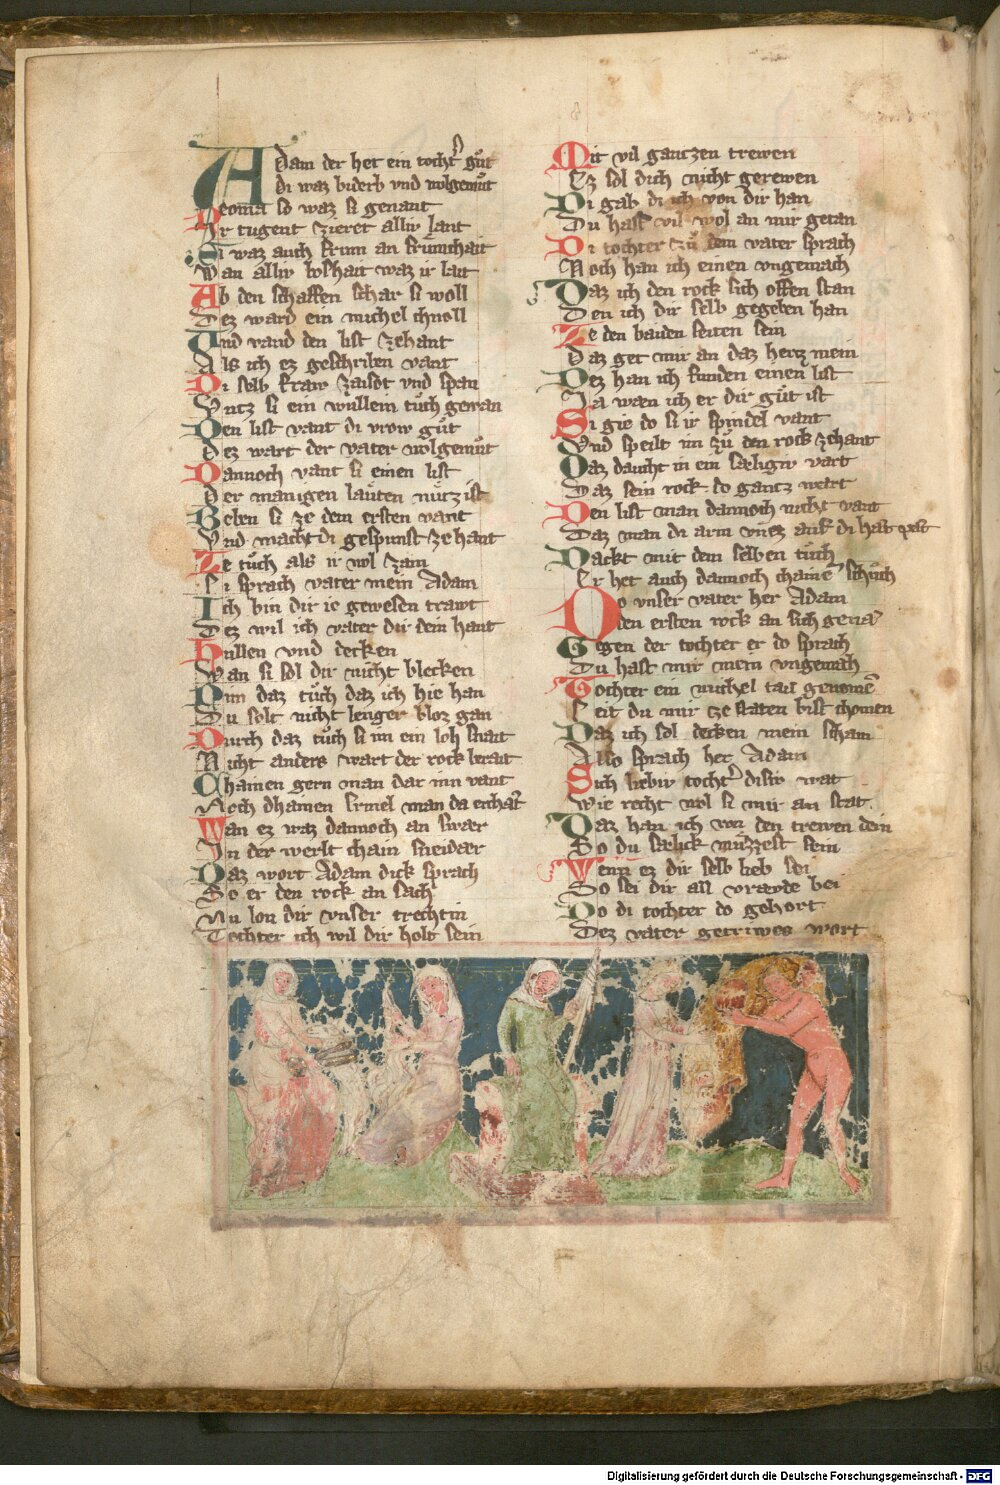 Adam der het ein tochter gůt
Di waz biderb vnd wolgemůt
Neoma so waz si genant
Ir tugent zieret alliv lant
Si waz auch frum an frumchait
Wan alliv boshait waz ir lait
Ab den schaffen schar si woll
Dez ward ein michel chnoll
Vnd vand den list zehant
Als ich ez geschriben vant
Di selb fraw zaisot vnd span
Vntz si ein wullein tůch gewan
Den list vant di vrow gůt
Dez wart der vater wolgemůt
Dannoch vant si einen list
Der manigen lauten nutz ist
Weben si ze dem ersten vant
Vnd macht di gespunst ze hant
Ze tůch als ir wol zam
Si sprach vater mein Adam
Ich bin dir ie gewesen trawt
Dez wil ich vater dir dein haut
Hullen vnd decken
Wan si sol dir nicht blecken
Nim daz tůch daz ich hie han
Du solt nicht lenger bloz gan
Durch daz tůch si im ein loh snait
Nicht anders wart der rock berait
Chainen gern man dar inn vant
Noch dhainen ermel man da erchant
Wan ez waz dannoch an swær
In der werlt chain sneidær
Daz wort Adam dick sprach
Do er den rock an sach
Nu lon dir vnser trechtin
Tochter ich wil dir holt sein
Mit vil gantzen trewen
Ez sol dich nicht gerewen
Di gab di ich von dir han
Du hast vil wol an mir getan
Di tochter zů dem vater sprach
Noch han ich einen vngemach
Daz ich den rock sich offen stan
Den ich dir selb gegeben han
Ze den baiden seiten sein
Daz get mir an daz hertz mein
Dez han ich funden einen list
Ja wæn ich er dir gůt ist
Si gie do si ir spindel vant
Vnd speilt im zů den rock zehant
Daz daucht in ein sæligiv vart
Daz sein rock do gantz wart
Den list man dannoch nicht vant
Daz man di arm
Dackt mit dem selben tůch
Er het auch dannoch chaine schůch
Do vnser vater her Adam
Den ersten rock an sich genam
Gegen der tochter er do sprach
Du hast mir mein vngemach
Tochter ein michel tail genomen
Seit du mir ze staten bist chomen
Daz ich sol decken mein scham
Also sprach her Adam
Sich liebiv tochter disiv wat
Wie recht wol si mir an stat
Daz han ich von den trewen dein
So du sælick muzzest sein
Wenn ez dir selb lieb sei
So sei dir all vræwde bei
Do di tochter do gehort
Dez vater getriwes wort
Digitalisierung gefördert durch die Deutsche Forschungsgemeinschaft - DFG